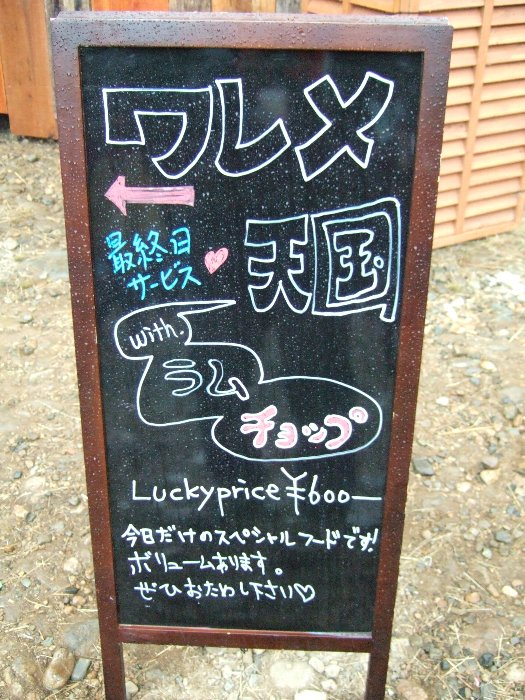 ワレメ
天国
最終日
サービス
with
ラム
チョップ
Luckyprice ¥600—
今日だけのスペシャルフードです!
ボリュームあります。
ぜひおためし下さい♡